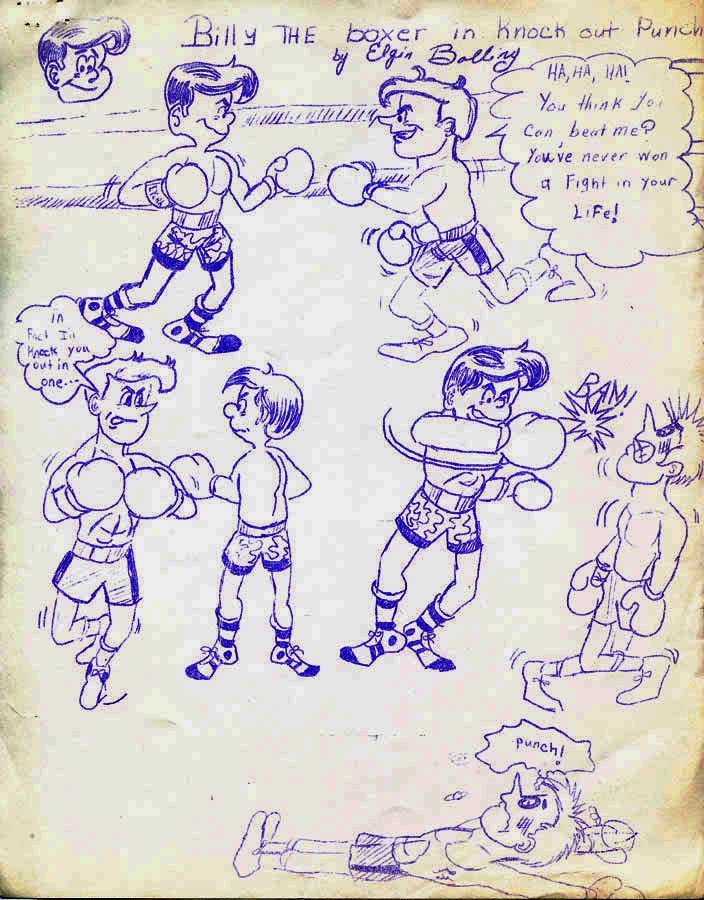 Billy THE boxer in Knock out Punch
by Elgin Bolling
HA, HA, HA!
You think You
Can beat me?
You've never won
a Fight in your
LiFe!
in
Fact I'll
Knock you
out in
one...
BAM!
punch!